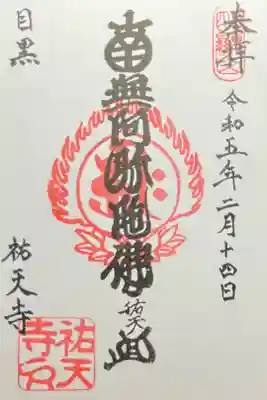 奉拝
令和五年二月十四日
南無阿弥陀佛
祐天
目黒
祐天寺
祐天
寺印